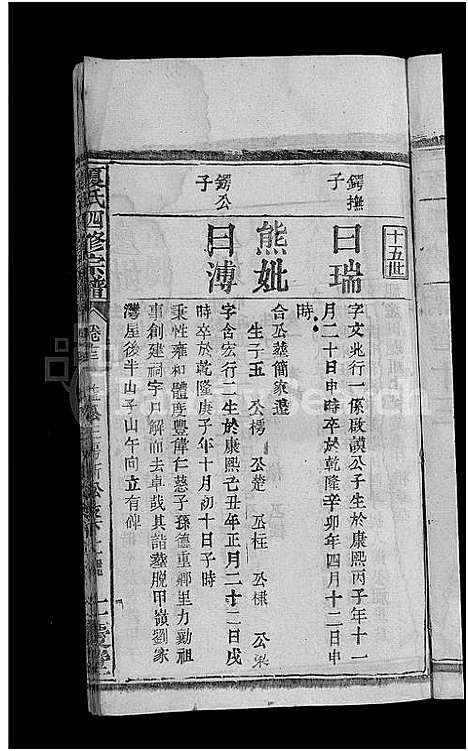 十五世
鍔撫子
曰瑞
字文兆行一係啟謨公子生於康熙丙子年十一
月二十日申時卒於乾隆辛卯年四月十二日申
時
熊妣
合公葬簡家邊
生子五 公樗 公楚 公柱 公樑 公梁
鍔公子
曰溥
字含宏行二生於康熙己丑年正月二十二日戌
時卒於乾隆庚子年十月初十日子時
秉性雍和體度豐偉仁慈子孫德重鄉里力勷祖
事創建祠宇尸解而去卓哉其詣葬脫甲嶺劉家
灣屋後半山子山午向立有碑
夏氏四修宗譜
卷三